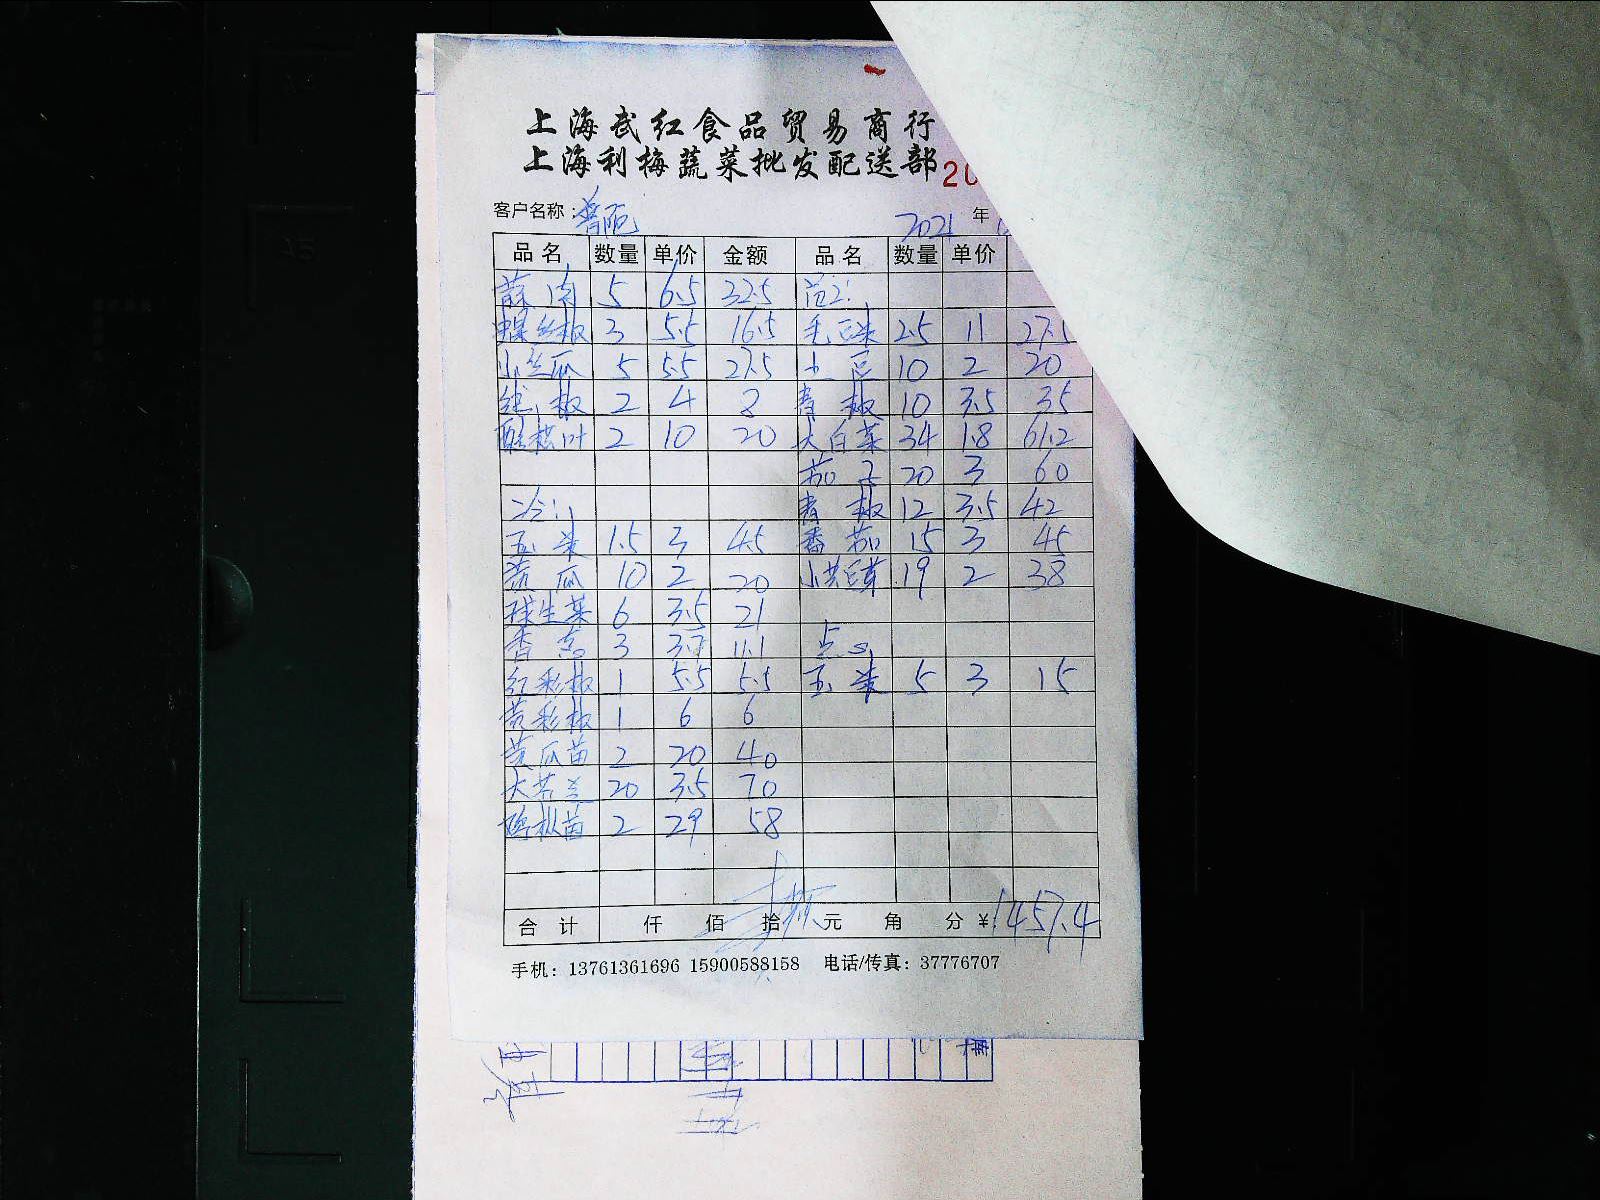 上海武红食品贸易商行
上海利梅蔬菜批发配送部
20
客户名称：普陀 2021 年
品名 数量 单价 金额 品名 数量 单价
蒜肉 5 6.5 32.5
螺丝椒 3 5.5 16.5 毛豆米 2.5 11 27.
小丝瓜 5 5.5 27.5 土豆 10 2 20
红椒 2 4 8 青椒 10 3.5 35
2 10 20 大白菜 34 1.8 61.2
茄子 20 3 60
冷： 青椒 12 3.5 42
玉米 1.5 3 4.5 番茄 15 3 45
黄瓜 10 2 20 19 2 38
球生菜 6 3.5 21
香菜 3 3.7 11.1 点心
红彩椒 1 5.5 5.5 玉米 5 3 15
黄彩椒 1 6 6
黄瓜苗 2 20 40
大芥兰 20 3.5 70
鸡枞菌 2 29 58
合计 仟 佰 拾 元 角 分 ¥1457.4
手机：13761361696 15900588158 电话/传真：37776707